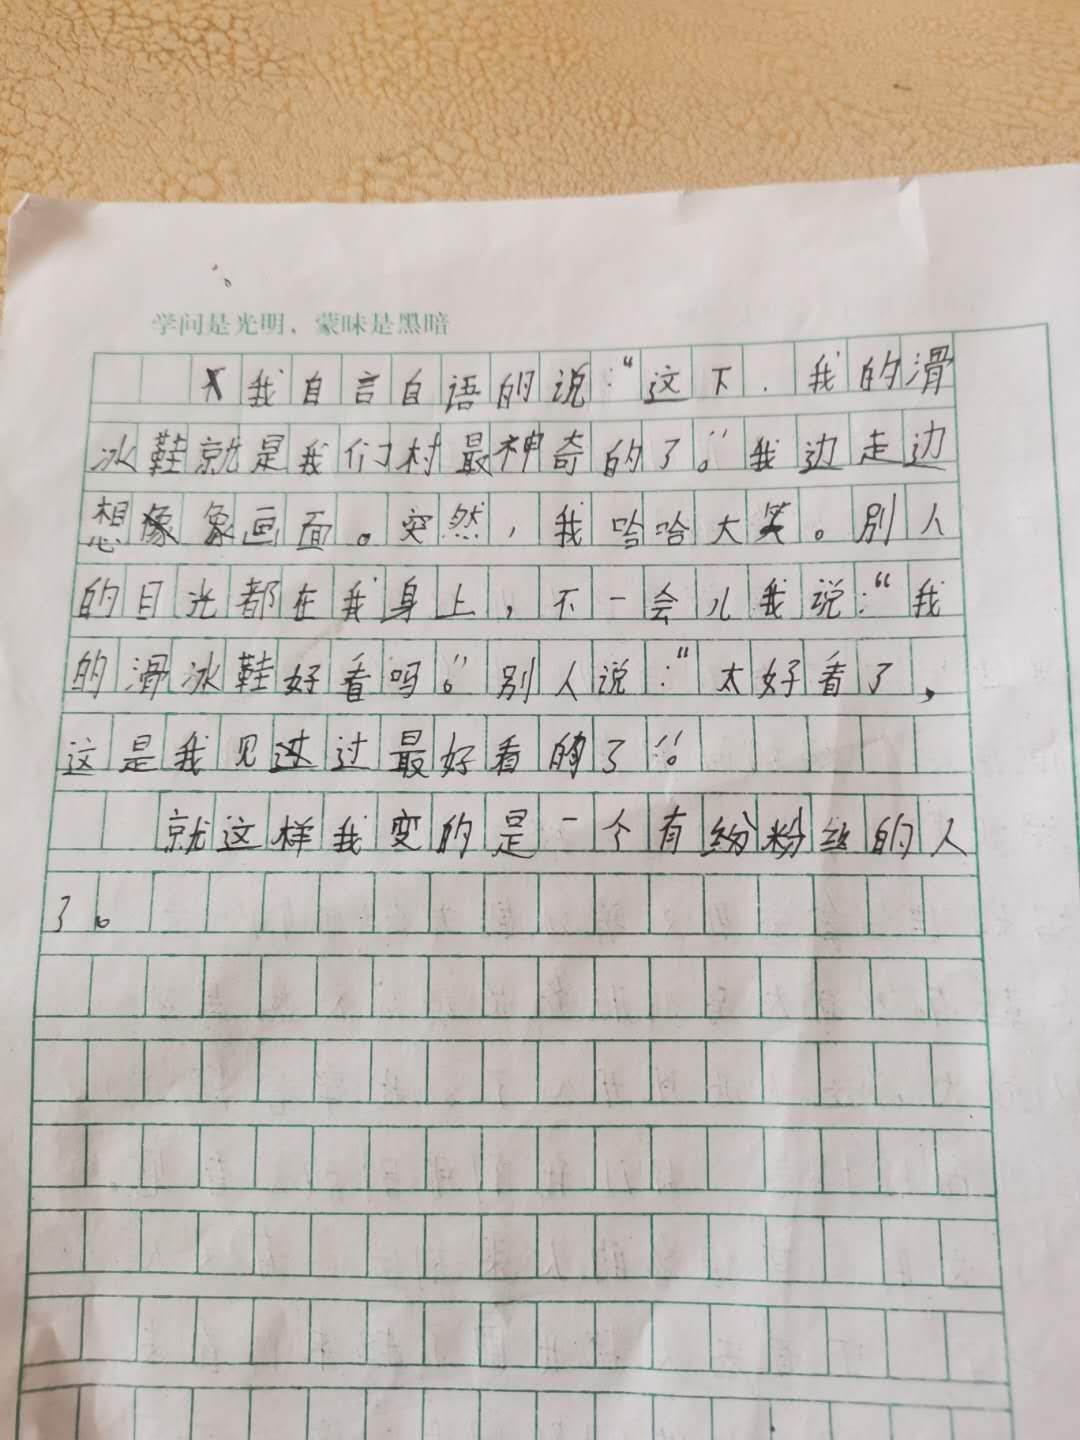 学问是光明，蒙昧是黑暗
我自言自语的说：“这下．我的滑
冰鞋就是我们村最神奇的了。”我边走边
想像象画面。突然，我哈哈大笑。别人
的目光都在我身上，不一会儿我说：“我
的滑冰鞋好看吗。”别人说：“太好看了，
这是我见过过最好看的了”。
就这样我变的是一个有纷粉丝的人
了。